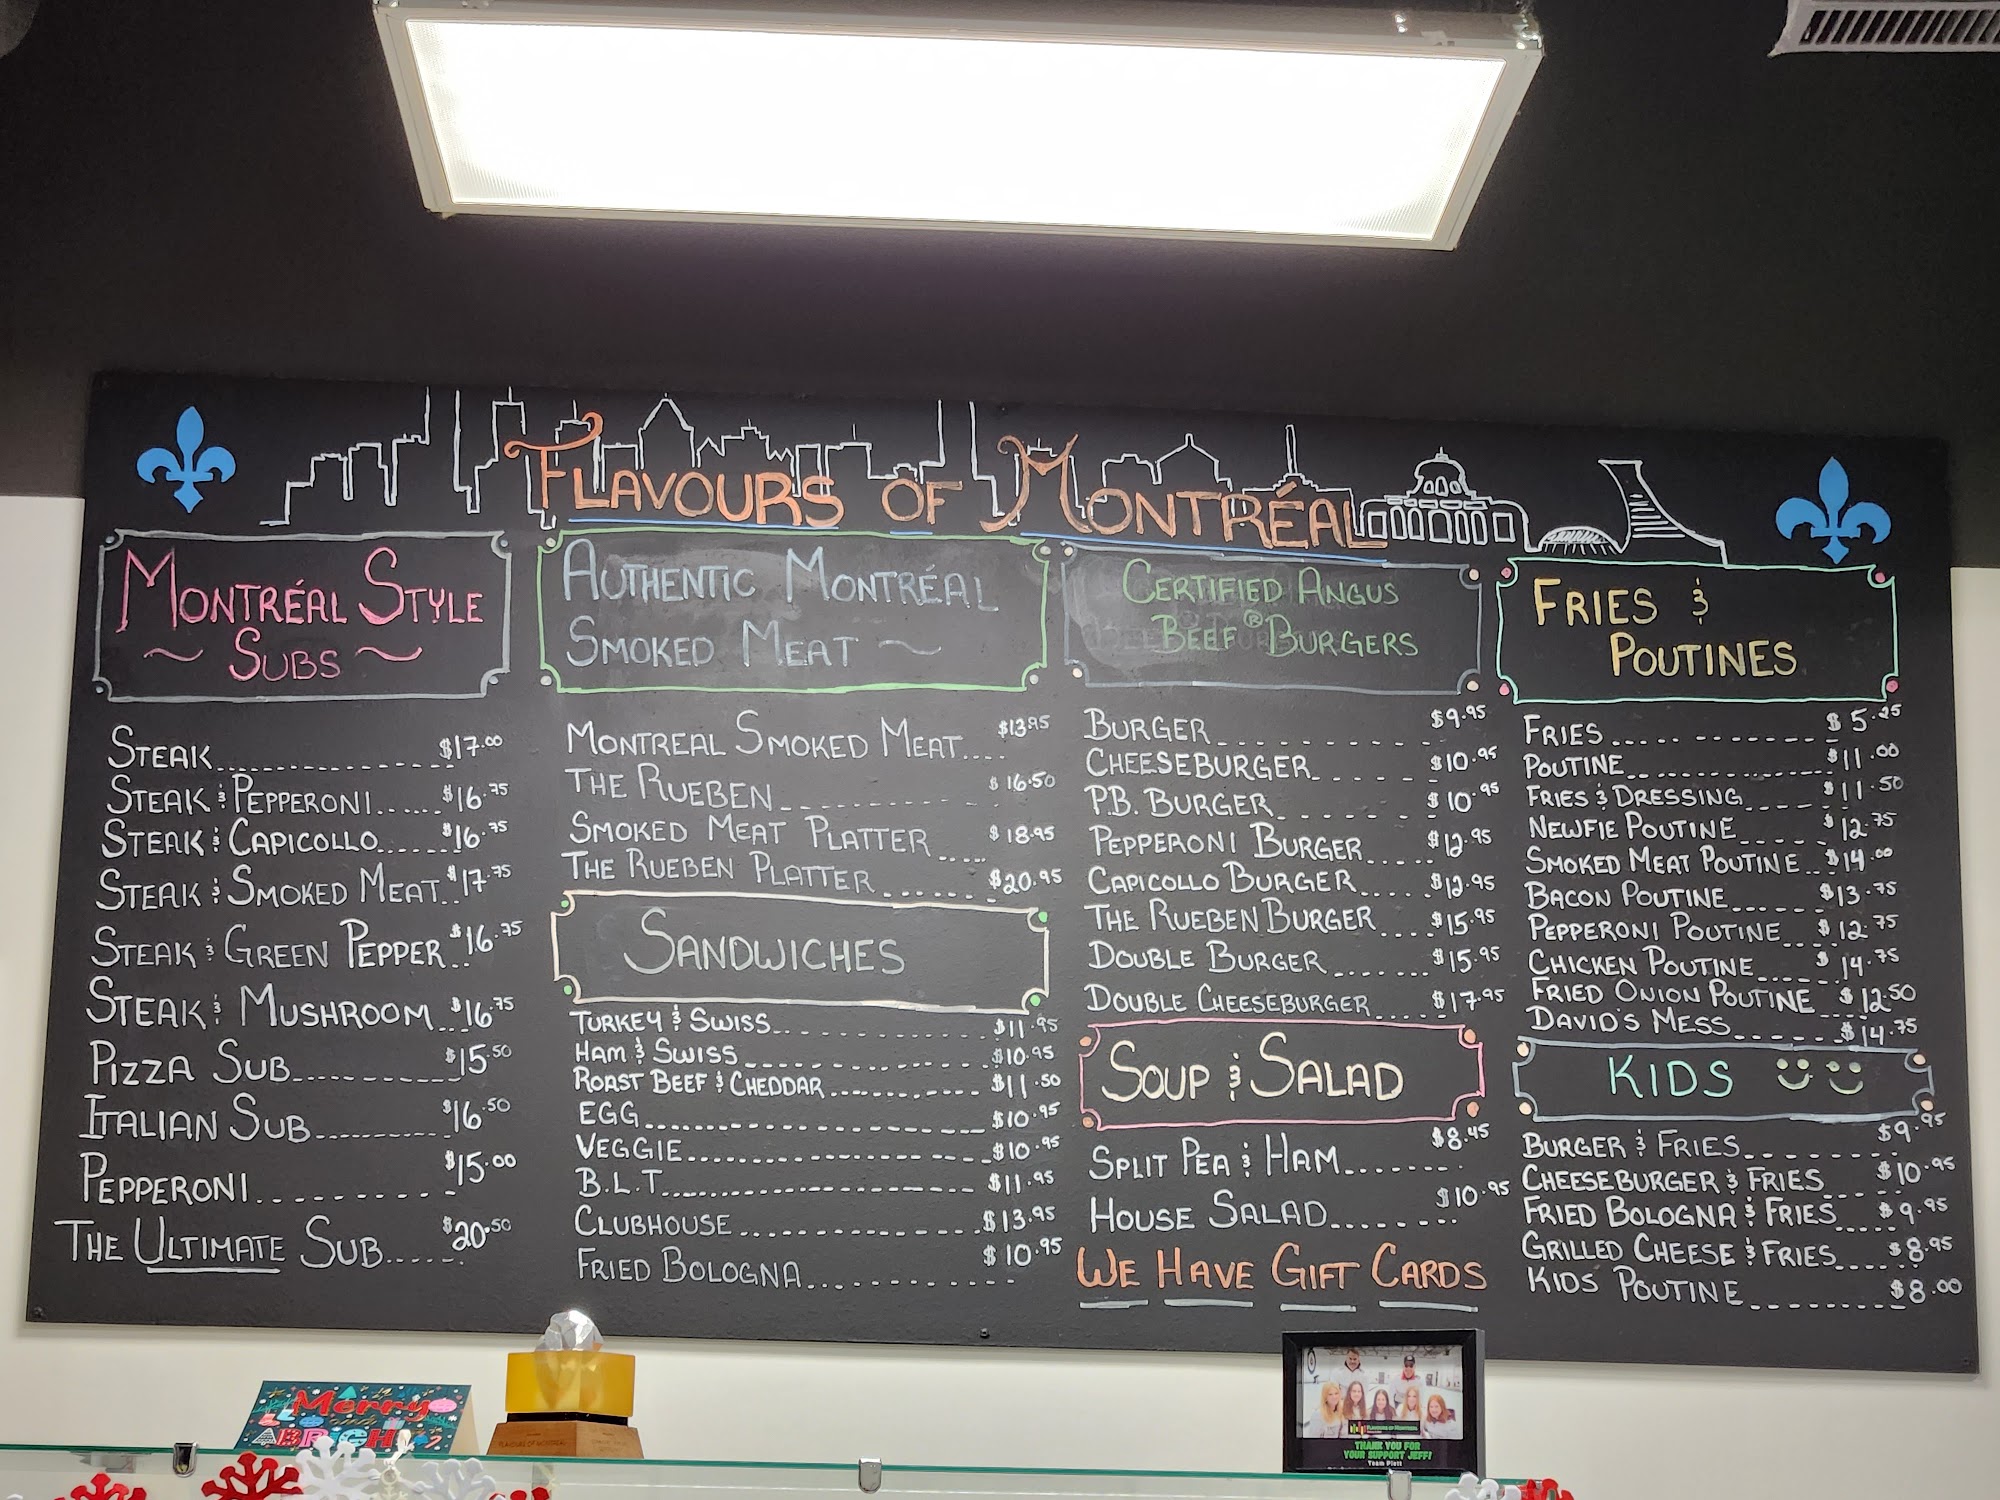 FLAVOURS OF MONTRÉAL
MONTRÉAL STYLE
~ SUBS ~
STEAK $17.00
STEAK & PEPPERONI $16.75
STEAK & CAPICOLLO $16.75
STEAK & SMOKED MEAT $17.75
STEAK & GREEN PEPPER $16.75
STEAK & MUSHROOM $16.75
PIZZA SUB $15.50
ITALIAN SUB $16.50
PEPPERONI $15.00
THE ULTIMATE SUB $20.50
AUTHENTIC MONTRÉAL
SMOKED MEAT ~
MONTREAL SMOKED MEAT $13.95
THE RUEBEN $16.50
SMOKED MEAT PLATTER $18.95
THE RUEBEN PLATTER $20.95
SANDWICHES
TURKEY & SWISS $11.95
HAM & SWISS $10.95
ROAST BEEF & CHEDDAR $11.50
EGG $10.95
VEGGIE $10.95
B.L.T $11.95
CLUBHOUSE $13.95
FRIED BOLOGNA $10.95
CERTIFIED ANGUS
BEEF® BURGERS
BURGER $9.95
CHEESEBURGER $10.95
P.B. BURGER $10.95
PEPPERONI BURGER $12.95
CAPICOLLO BURGER $12.95
THE RUEBEN BURGER $15.95
DOUBLE BURGER $15.95
DOUBLE CHEESEBURGER $17.95
SOUP & SALAD
SPLIT PEA & HAM $8.45
HOUSE SALAD $10.95
WE HAVE GIFT CARDS
FRIES &
POUTINES
FRIES $5.25
POUTINE $11.00
FRIES & DRESSING $11.50
NEWFIE POUTINE $12.75
SMOKED MEAT POUTINE $14.00
BACON POUTINE $13.75
PEPPERONI POUTINE $12.75
CHICKEN POUTINE $14.75
FRIED ONION POUTINE $12.50
DAVID'S MESS $14.75
KIDS
BURGER & FRIES $9.95
CHEESEBURGER & FRIES $10.95
FRIED BOLOGNA & FRIES $9.95
GRILLED CHEESE & FRIES $8.95
KIDS POUTINE $8.00
Merry
BRIGHT
FLAVOURS OF MONTREAL
THANK YOU FOR
YOUR SUPPORT JEFF!
Team Plett